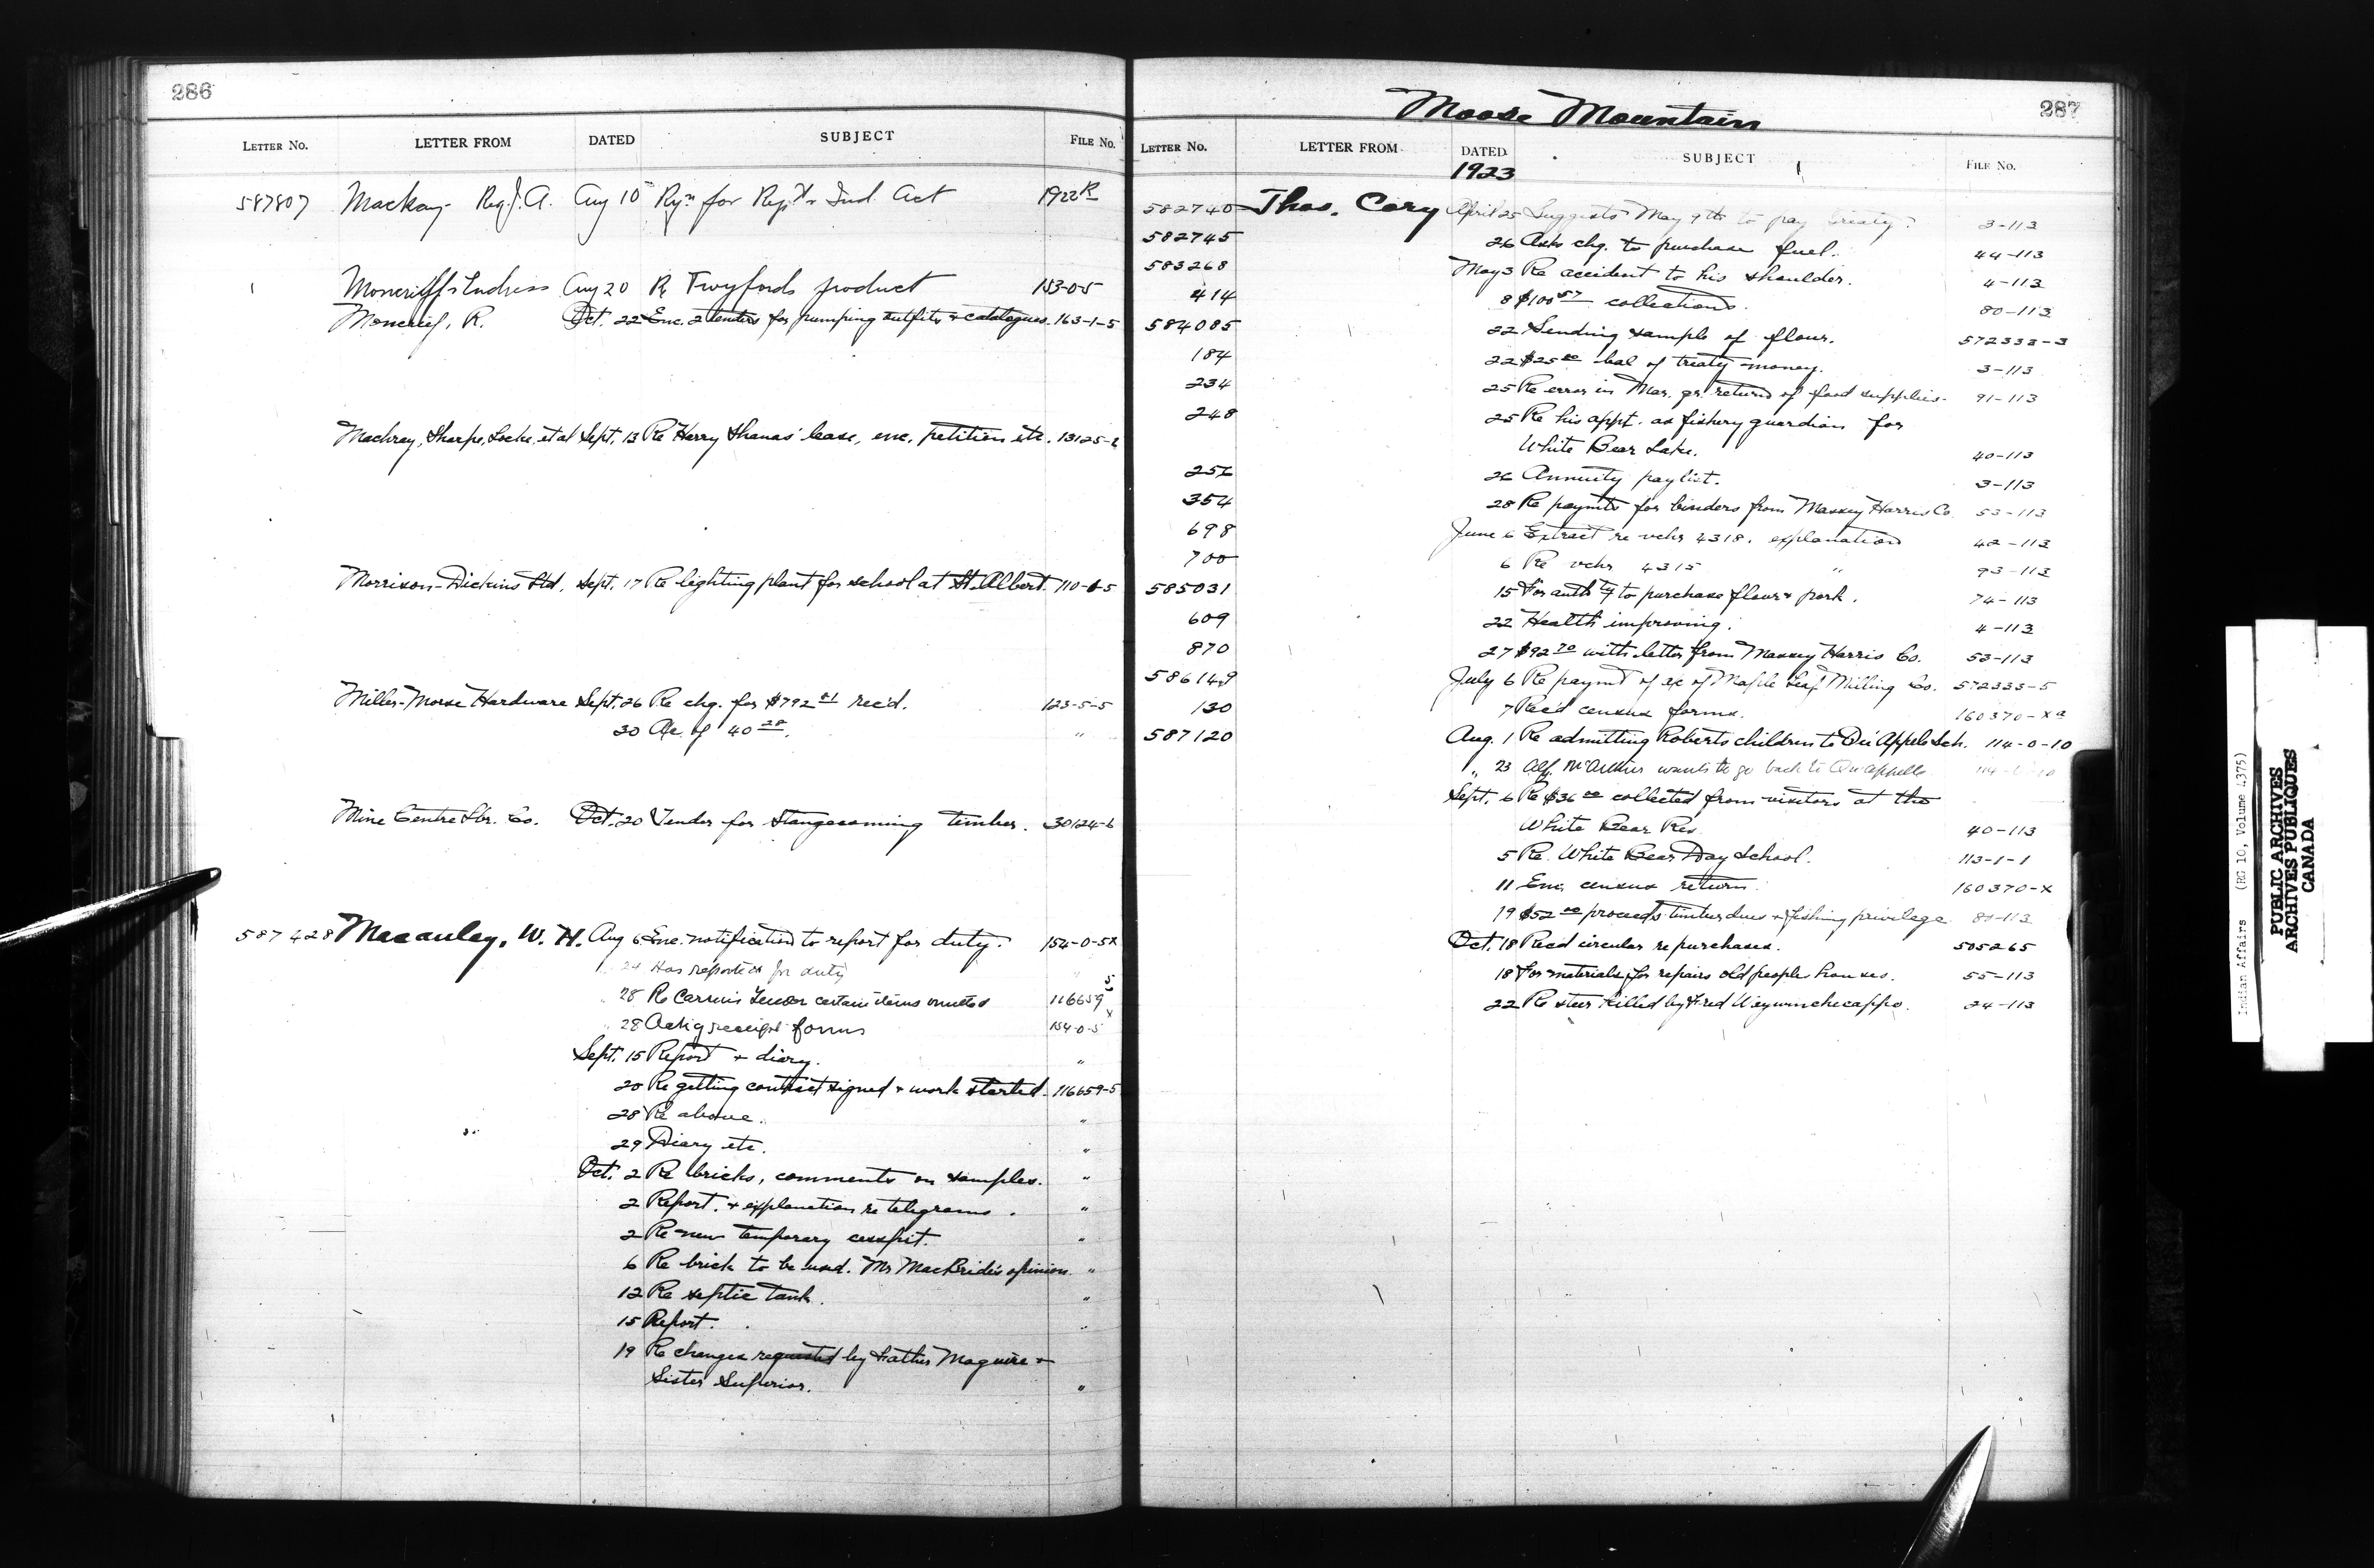 286
LETTER No. LETTER FROM DATED SUBJECT FILE No.
587807 Mackay Rev. J. A. Aug 10 Rqn for Rept Ind Act 1922 R
Moncrieff & Endress Aug 20 Re Twyfords product 153-0-5
Moncrief, R. Oct. 22 Enc. 2 tenders for pumping outfits & catalogues. 163-1-5
Machray, Sharpe, Locke, et al Sept. 13 Re Harry Shanas' lease, enc. petition etc. 13125-2
Morrison-Dickins Ltd. Sept. 17 Re lighting plant for school at St. Albert. 110-6-5
Miller-Morse Hardware Sept. 26 Re chq. for $792.81 rec'd. 123-5-5
30 Ac. of 40.28. "
Mine Centre Lbr. Co. Oct. 20 Tender for Stangecoming timber. 30124-6
587428 Macauley, W. H. Aug 6 Enc. notification to report for duty. 154-0-5x
24 Has reported for duty "
" 28 Re Carvers Tender certain items omitted 116659 5
" 28 Ackg receipt forms 154-0-5 x
Sept. 15 Report & diary. "
20 Re getting contract signed & work started. 116659-5
28 Re above. "
29 Diary etc. "
Oct. 2 Re bricks, comments on samples. "
2 Report. & explanation re telegrams. "
2 Re new temporary cesspit. "
6 Re brick to be used. Mr MacBride's opinion. "
12 Re septic tank. "
15 Report. "
19 Re changes requested by Father Maguire &
Sister Superior. "
Moose Mountain
287
LETTER No. LETTER FROM DATED SUBJECT FILE No.
1923
582740 Thos. Cory April 25 Suggests May 9th to pay treaty. 3-113
582745 26 Asks chq. to purchase fuel. 44-113
583268 May 3 Re accident to his shoulder. 4-113
414 8 $100.57 collections. 80-113
584085 22 Sending sample of flour. 572333-3
184 22 $25.00 bal of treaty money. 3-113
234 25 Re error in Mar. qr. return of food supplies. 91-113
248 25 Re his appt. as fishery guardian for
White Bear Lake. 40-113
256 26 Annuity paylist. 3-113
354 28 Re paymts for binders from Massey Harris Co. 53-113
698 June 6 Extract re vchr 4318. explanation 42-113
700 6 Re vchr 4315 " 93-113
585031 15 For authty to purchase flour & pork. 74-113
609 22 Health improving. 4-113
870 27 $92.70 with letter from Massey Harris Co. 53-113
586149 July 6 Re paymt of ac of Maple Leaf Milling Co. 572333-5
130 7 Rec'd census forms. 160370-xa
587120 Aug. 1 Re admitting Roberts children to Qu'Appelle Sch. 114-0-10
" 23 Alf. McArthur wants to go back to Qu'Appelle
Sept. 6 Re $36.00 collected from visitors at the
White Bear Res 40-113
5 Re. White Bear Day School. 113-1-1
11 Enc. census return. 160370-x
19 $52.00 proceeds timber dues & fishing privilege 80-113
Oct. 18 Rec'd circular re purchases. 505265
18 For materials for repairs old people houses. 55-113
22 Re steer killed by Fred 24-113
Indian Affairs (RG 10, Volume 4375)
PUBLIC ARCHIVES
ARCHIVES PUBLIQUES
CANADA